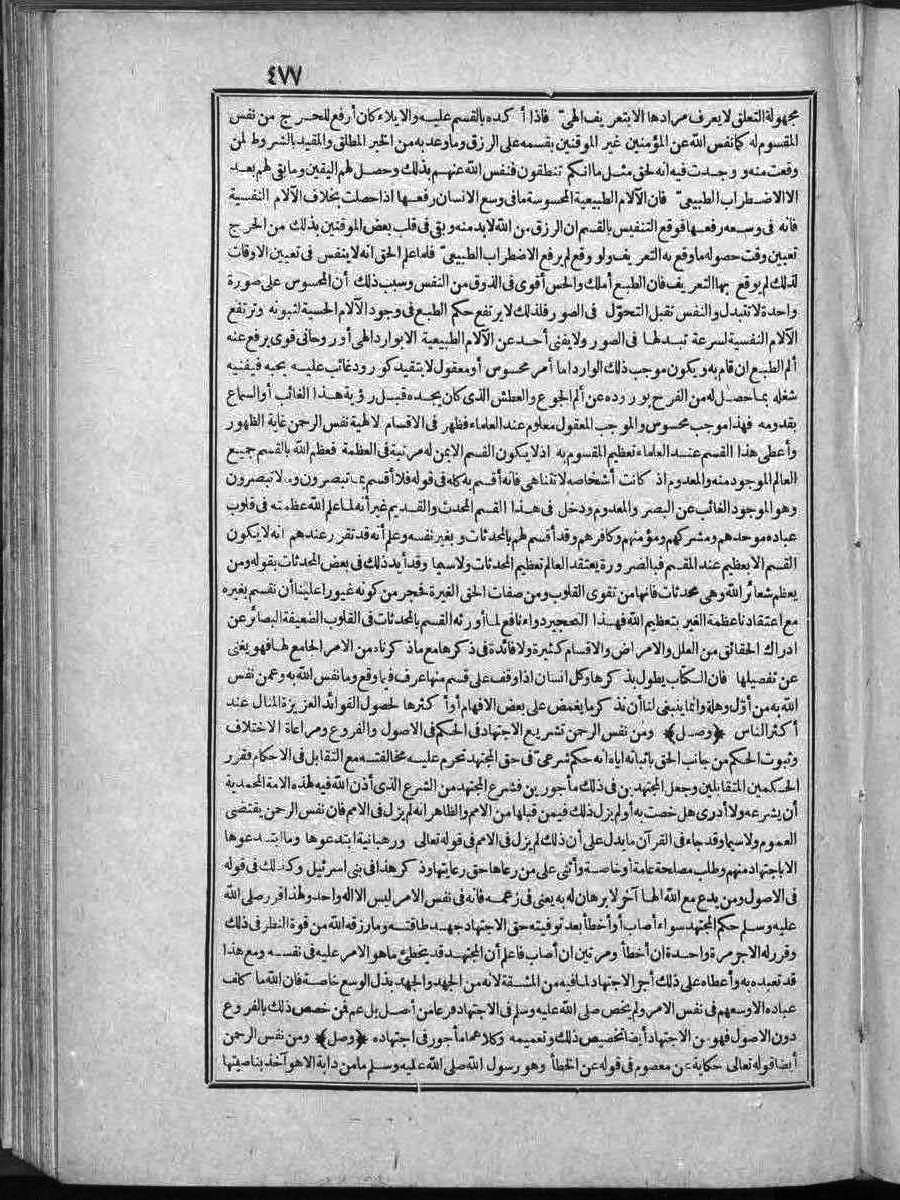 ٤٧٧
مجهولة التعلق لا يعرف مرادها الا بتعريف الهي فاذا أكده بالقسم عليه والايلاء كان أرفع للحرج من نفس
المقسوم له كما نفس الله عن المؤمنين غير الموقنين بقسمه على الرزق وما وعد به من الخبر المطلق والمقيد بالشروط لمن
وقعت منه ووجدت فيه انه لحق مثل ما انكم تنطقون فنفس الله عنهم بذلك وحصل لهم اليقين وما بقي لهم بعد
الا الاضطراب الطبيعي فان الآلام الطبيعية المحسوسة ما في وسع الانسان رفعها اذا حصلت بخلاف الآلام النفسية
فانه في وسعه رفعها فوقع التنفيس بالقسم ان الرزق من الله لا بد منه وبقي في قلب بعض الموقنين بذلك من الحرج
تعيين وقت حصوله ما وقع به التعريف ولو وقع لم يرفع الاضطراب الطبيعي فلما علم الحق انه لا ينفس في تعيين الاوقات
لذلك لم يوقع بها التعريف فان الطبع أملك والحس أقوى في الذوق من النفس وسبب ذلك أن المحسوس على صورة
واحدة لا تتبدل والنفس تقبل التحوّل في الصور فلذلك لا يرتفع حكم الطبع في وجود الآلام الحسية لثبوته وترتفع
الآلام النفسية لسرعة تبدلها في الصور ولا يفنى أحد عن الآلام الطبيعية الا بوارد الهي أو روحاني قوي يرفع عنه
ألم الطبع ان قام به ويكون موجب ذلك الوارد اما أمر محسوس أو معقول لا يتقيد كورود غائب عليه يحبه فيفنيه
شغله بما حصل له من الفرح بوروده عن ألم الجوع والعطش الذي كان يجده قبل رؤية هذا الغائب أو السماع
بقدومه فهذا موجب محسوس والموجب المعقول معلوم عند العلماء فظهر في الاقسام الالهية نفس الرحمن غاية الظهور
وأعطى هذا القسم عند العلماء تعظيم المقسوم به اذ لا يكون القسم الا بمن له مرتبة في العظمة فعظم الله بالقسم جميع
العالم الموجود منه والمعدوم اذ كانت أشخاصه لا تتناهى فانه أقسم به كله في قوله فلا أقسم بما تبصرون وما لا تبصرون
وهو الموجود الغائب عن البصر والمعدوم ودخل في هذا القسم المحدث والقديم غير أنه لما علم الله عظمته في قلوب
عباده موحدهم ومشركهم ومؤمنهم وكافرهم وقد أقسم لهم بالمحدثات وبغير نفسه وعلم أنه قد تقرر عندهم انه لا يكون
القسم الا بعظيم عند المقسم فبالضرورة يعتقد العالم تعظيم المحدثات ولا سيما وقد أيد ذلك في بعض المحدثات بقوله ومن
يعظم شعائر الله وهي محدثات فانها من تقوى القلوب ومن صفات الحق الغيرة فحجر من كونه غيورا علينا أن نقسم بغيره
مع اعتقادنا عظمة الغير بتعظيم الله فهذا التحجير دواء نافع لما أورثه القسم بالمحدثات في القلوب الضعيفة البصائر عن
ادراك الحقائق من العلل والامراض والاقسام كثيرة ولا فائدة في ذكرها مع ما ذكرناه من الامر الجامع لها فهو يغني
عن تفصيلها فان الكتاب يطول بذكرها وكل انسان اذا وقف على قسم منها عرف فيما وقع وما نفس الله به وعمن نفس
الله به من أوّل وهلة وانما ينبغي لنا أن نذكر ما يغمض على بعض الافهام أو أكثرها لحصول الفوائد العزيزة المنال عند
أكثر الناس ﴿وصل﴾ ومن نفس الرحمن تشريع الاجتهاد في الحكم في الاصول والفروع ومراعاة الاختلاف
وثبوت الحكم من جانب الحق باثباته اياه انه حكم شرعي في حق المجتهد تحرم عليه مخالفته مع التقابل في الاحكام فقرر
الحكمين المتقابلين وجعل المجتهدين في ذلك مأجورين فشرع المجتهد من الشرع الذي أذن الله فيه لهذه الامة المحمدية
أن يشرعه ولا أدري هل خصت به أو لم يزل ذلك فيمن قبلها من الامم والظاهر انه لم يزل في الامم فان نفس الرحمن يقتضي
العموم ولا سيما وقد جاء في القرآن ما يدل على أن ذلك لم يزل في الامم في قوله تعالى ورهبانية ابتدعوها وما ابتدعوها
الا باجتهاد منهم وطلب مصلحة عامة أو خاصة وأثنى على من رعاها حق رعايتها وذكر هذا في بني اسرائيل وكذلك في قوله
في الاصول ومن يدع مع الله الها آخر لا برهان له به يعني في زعمه فانه في نفس الامر ليس الا اله واحد ولهذا قرر صلى الله
عليه وسلم حكم المجتهد سواء أصاب أو أخطأ بعد توفيته حق الاجتهاد جهد طاقته وما رزقه الله من قوة النظر في ذلك
وقرر له الاجر مرة واحدة ان أخطأ ومرتين ان أصاب فاعلم أن المجتهد قد يخطئ ما هو الامر عليه في نفسه ومع هذا
قد تعبده به وأعطاه على ذلك أجر الاجتهاد لما فيه من المشقة لانه من الجهد والجهد بذل الوسع خاصة فان الله ما كلف
عباده الا وسعهم في نفس الامر ولم يخص صلى الله عليه وسلم في الاجتهاد فرعا من أصل بل عم فمن خصص ذلك بالفروع
دون الاصول فهو من الاجتهاد أيضا تخصيص ذلك وتعميمه وكلاهما مأجور في اجتهاده ﴿وصل﴾ ومن نفس الرحمن
أيضا قوله تعالى حكاية عن معصوم في قوله عن الخطأ وهو رسول الله صلى الله عليه وسلم ما من دابة الا هو آخذ بناصيتها